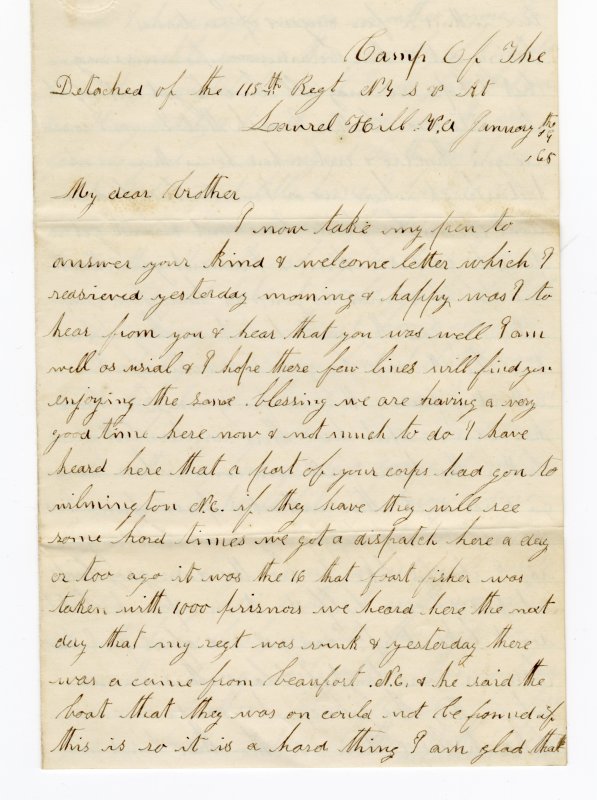 Camp Of The
Detached of the 115th Regt N Y S V At
Laurel Hill V.A January the
19
,65
My dear brother
I now take my pen to
answer your kind & welcome letter which I
reasieved yesterday morning & happy was I to
hear from you & hear that you was well I am
well as usial & I hope these few lines will find you
enjoying the same blessing we are having a very
good time here now & not much to do I have
heard here that a part of your corps had gon to
wilmington N.C. if they have they will see
some hard times we got a dispatch here a day
or too ago it was the 16 that foart fisher was
taken with 1000 prisnors we heard here the next
day that my regt was sunk & yesterday there
was a came from beaufort N.C. & he said the
boat that they was on could not be founed if
this is so it is a hard thing I am glad that